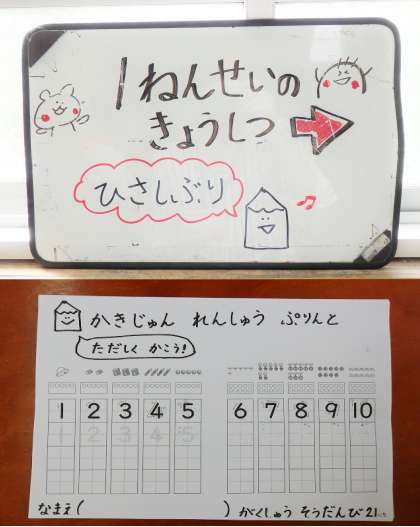 1ねんせいの
きょうしつ
ひさしぶり
かきじゅん れんしゅう ぷりんと
ただしく かこう!
1 2 3 4 5 6 7 8 9 10
1 2 3 4 5
なまえ( ) がくしゅう そうだんび 21